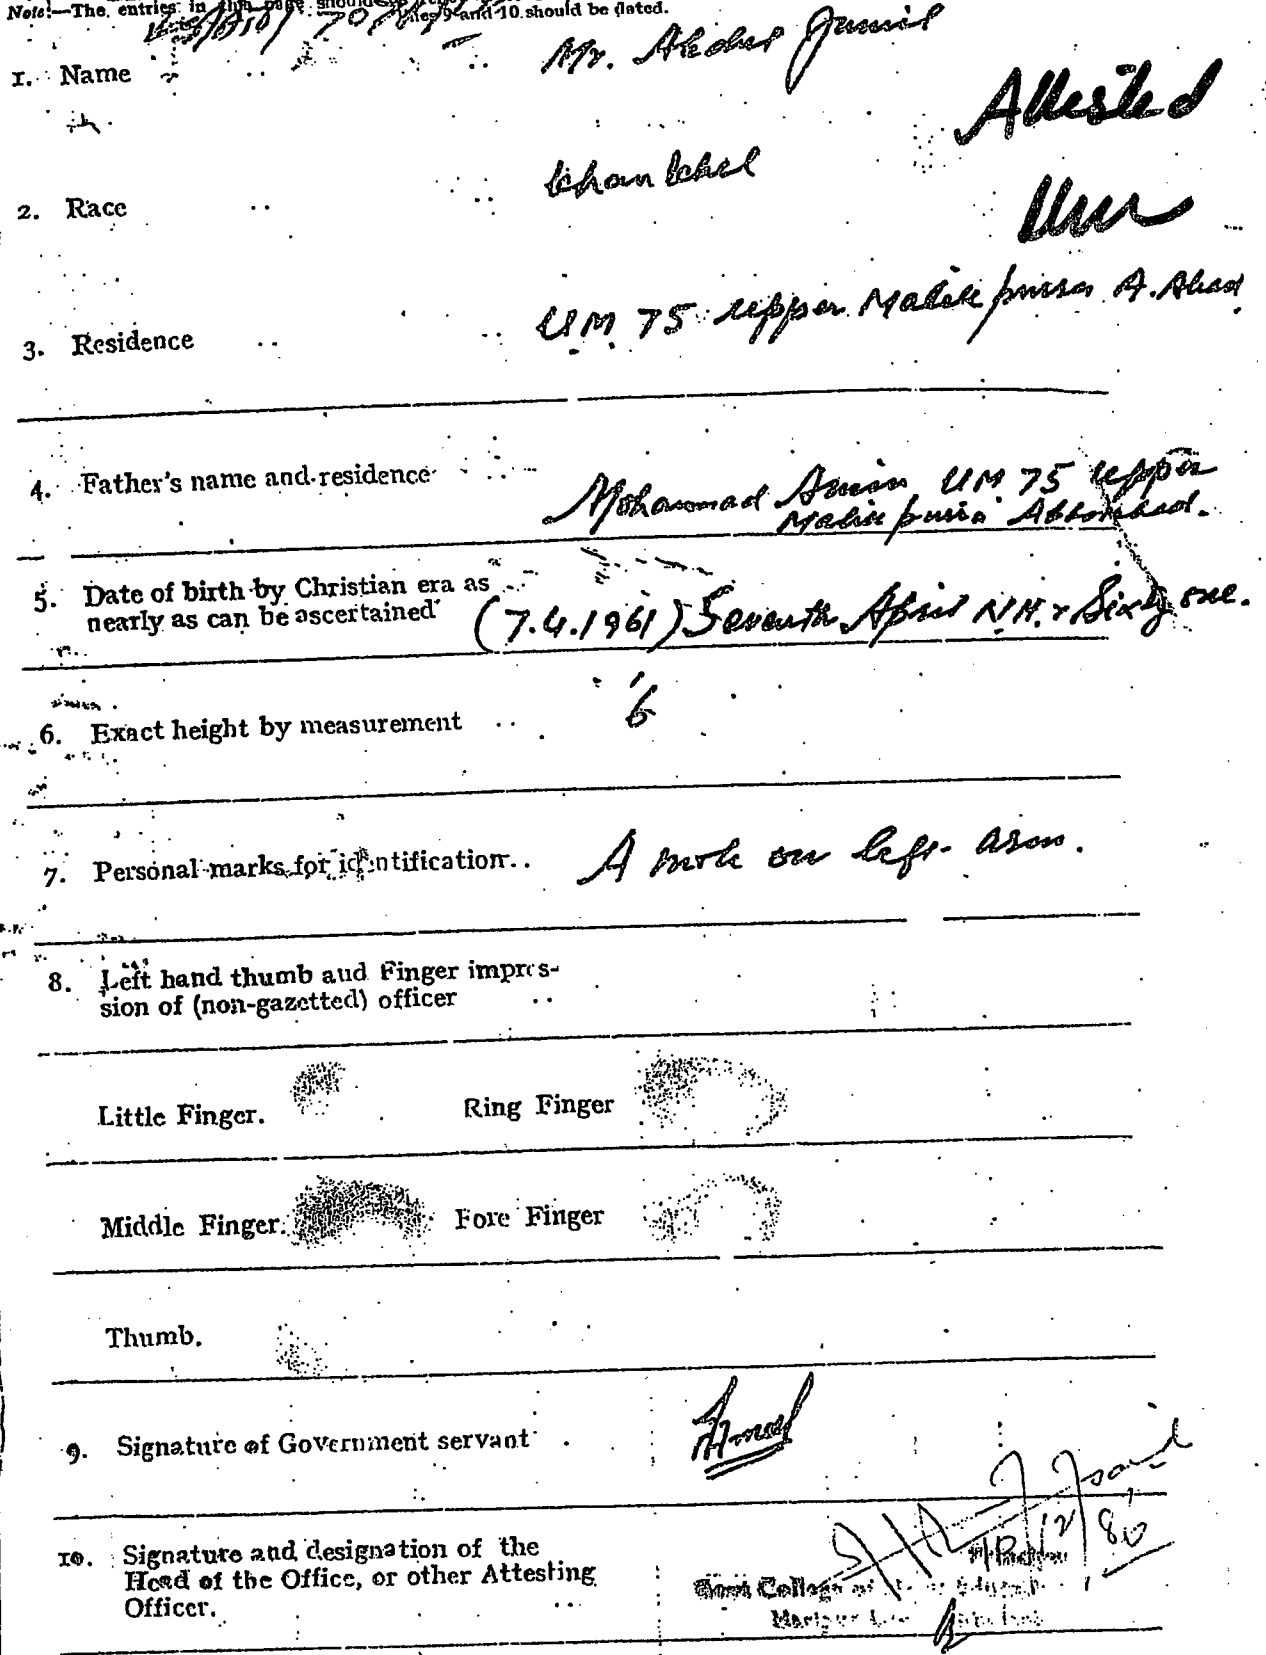 Note:—The entries in this page should
9 and 10 should be dated.
1. Name .. .. Mr. Abdul Jamil
Attested
2. Race .. .. Khan khel
3. Residence .. .. UM 75 upper Malik pura A. Abad
4. Father's name and residence .. Mohammad Amin UM 75 upper
Malik pura Abbottabad.
5. Date of birth by Christian era as
nearly as can be ascertained (7.4.1961) Seventh April N.H. & Sixty one.
6. Exact height by measurement .. 6'
7. Personal marks for identification.. A mole on left arm.
8. Left hand thumb and Finger impres-
sion of (non-gazetted) officer ..
Little Finger. Ring Finger
Middle Finger. Fore Finger
Thumb.
9. Signature of Government servant .
10. Signature and designation of the
Head of the Office, or other Attesting
Officer. ..
Govt College